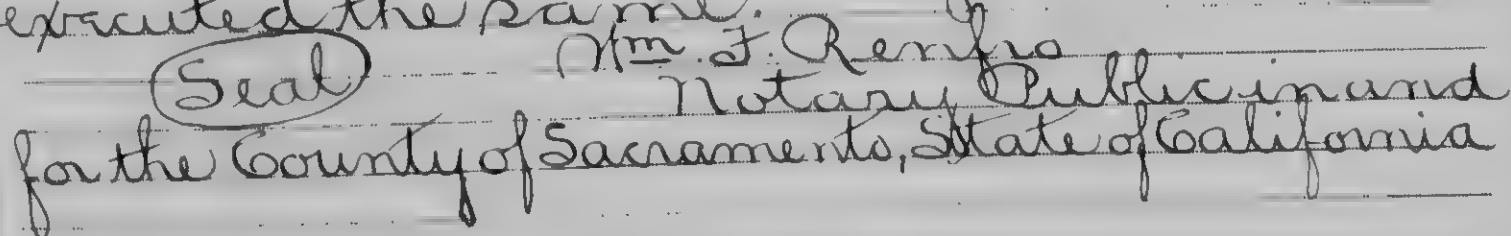 executed the same.
Seal Wm. F. Renfro
Notary Public in and
for the County of Sacramento, State of California